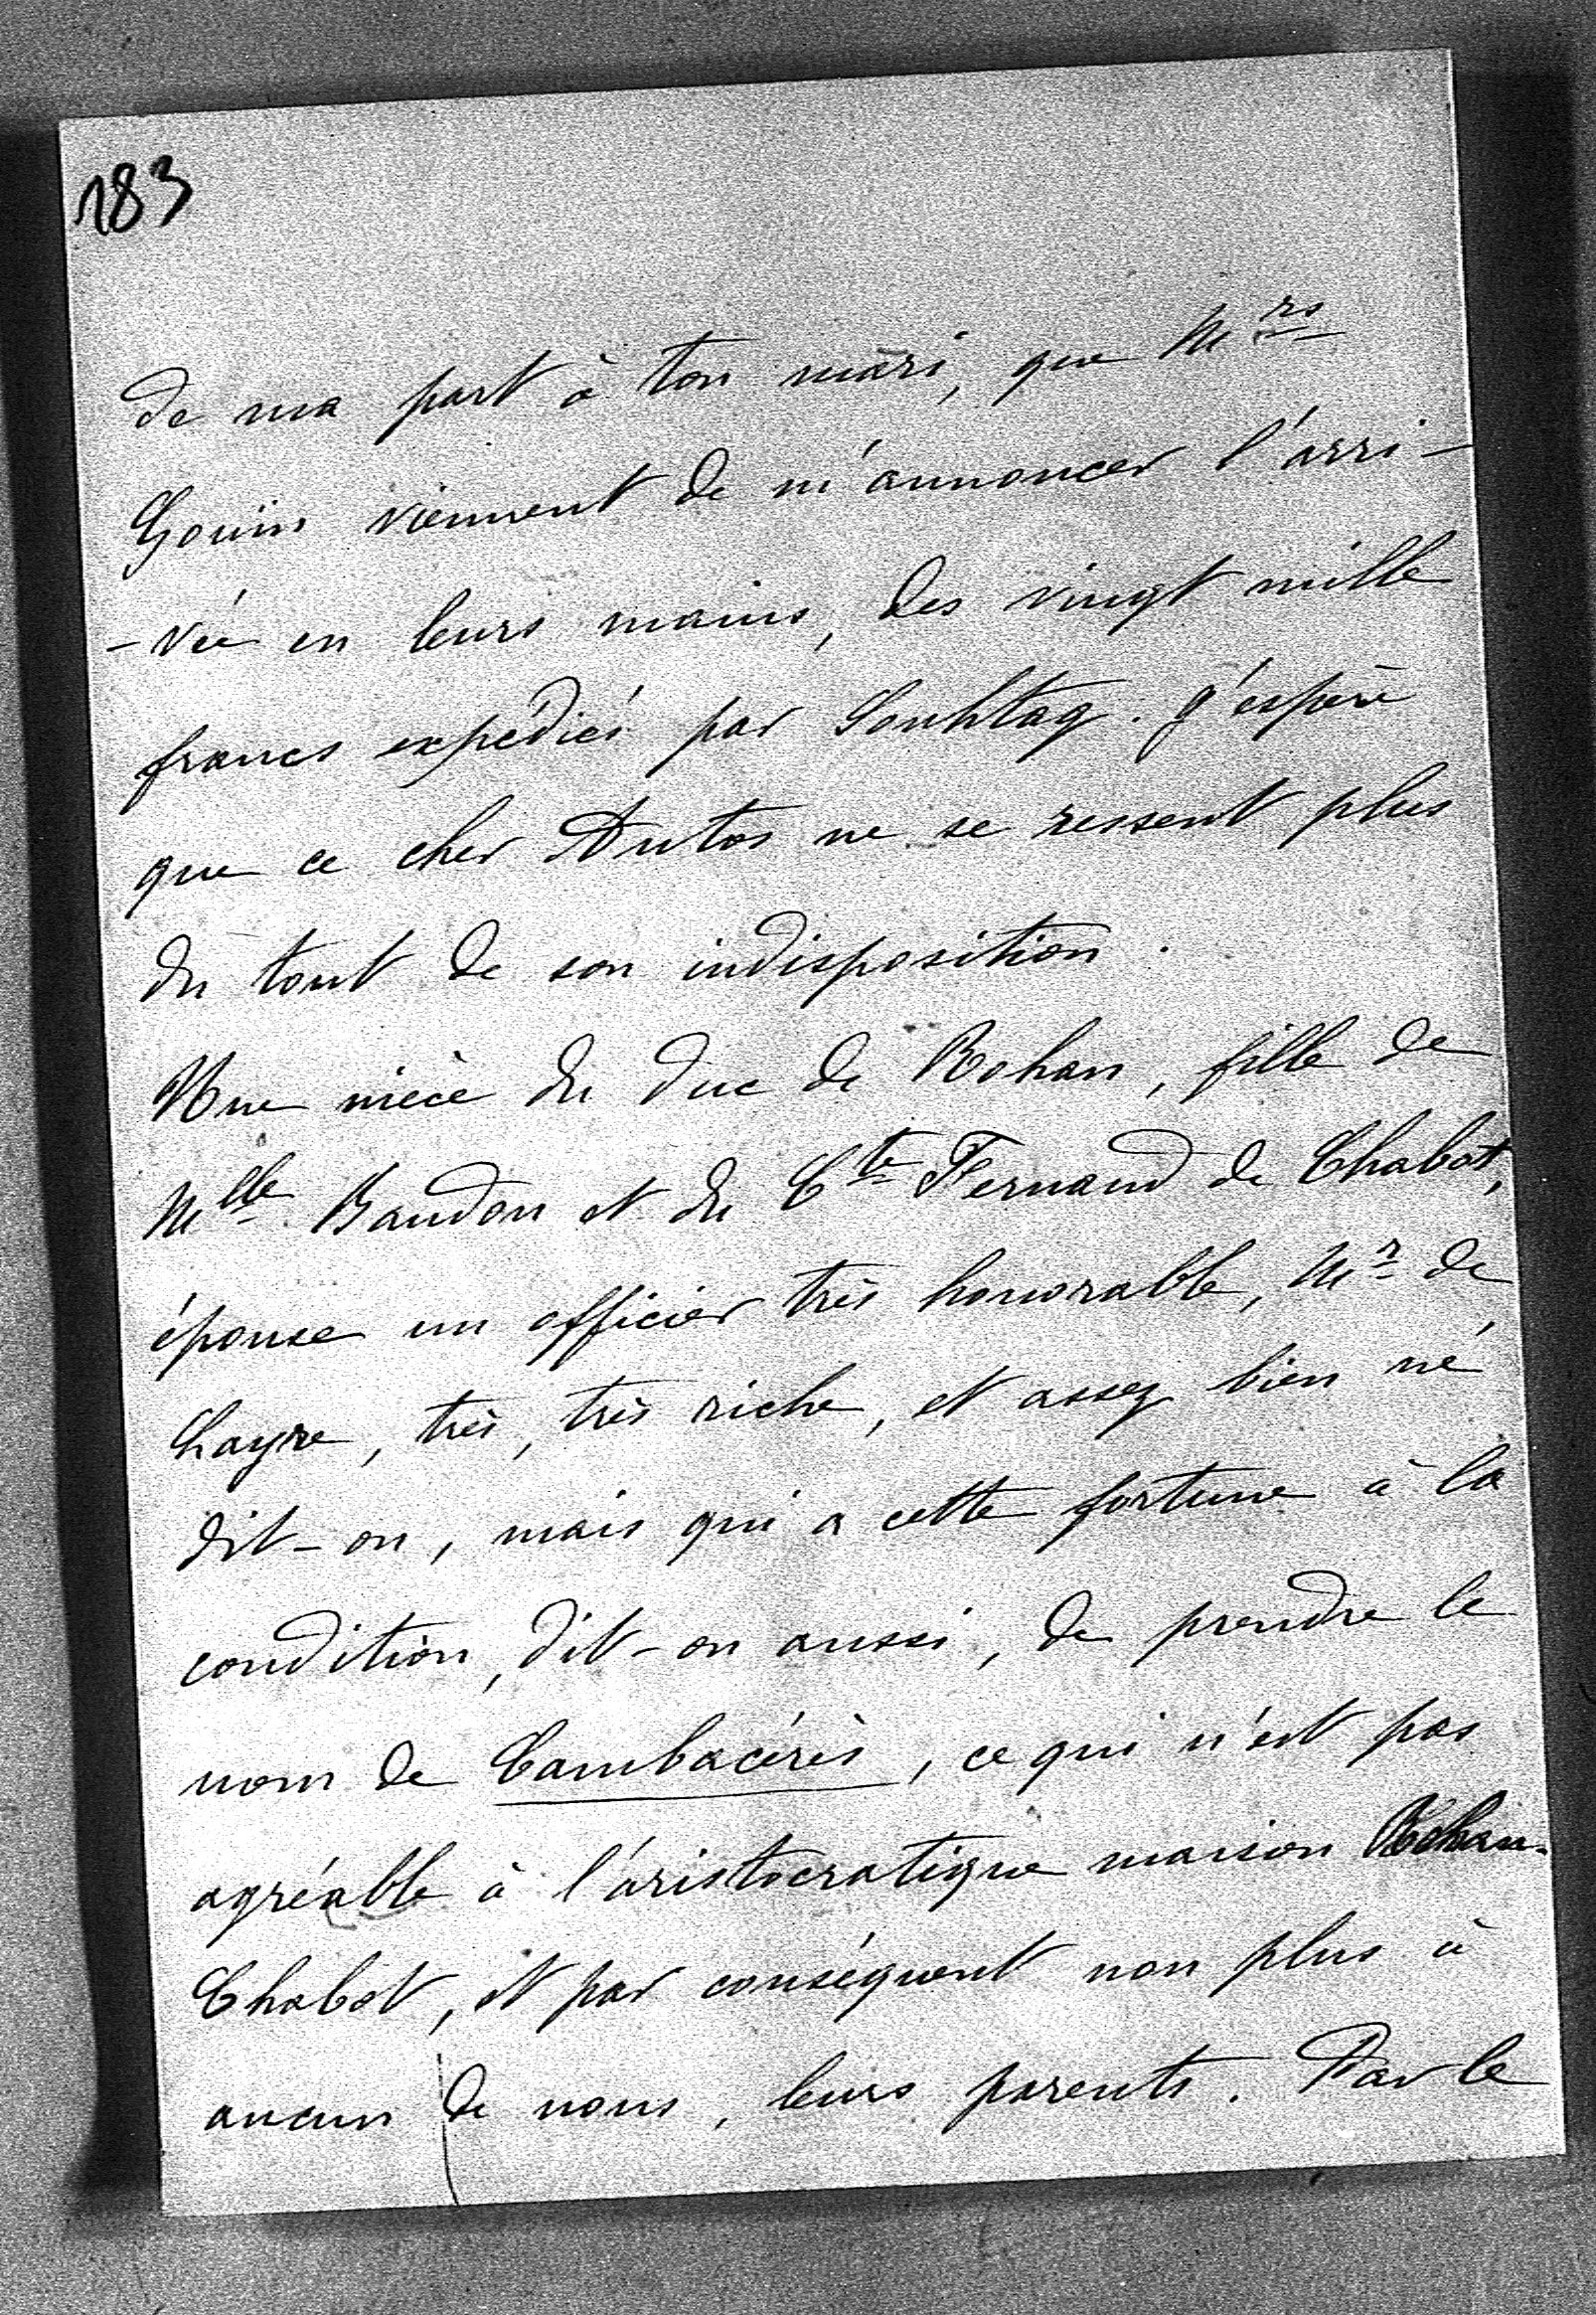 183
de ma part à ton mari, que Mrs
Gouin viennent de m'annoncer l'arri-
-vée en leurs mains, des vingt mille
francs expédiés par Sonhtag. J'espère
que ce cher Autos ne se ressent plus
du tout de son indisposition.
Une nièce du duc de Rohan, fille de
Melle Baudon et du Cte Fernand de Chabot,
épouse un officier très honorable, Mr de
Layre, très, très riche, et assez bien né,
dit-on, mais qui a cette fortune à la
condition, dit-on aussi, de prendre le
nom de Cambacérès, ce qui n'est pas
agréable à l'aristocratique maison Rohan-
Chabot, et par conséquent non plus à
aucun de nous, leurs parents. Par le